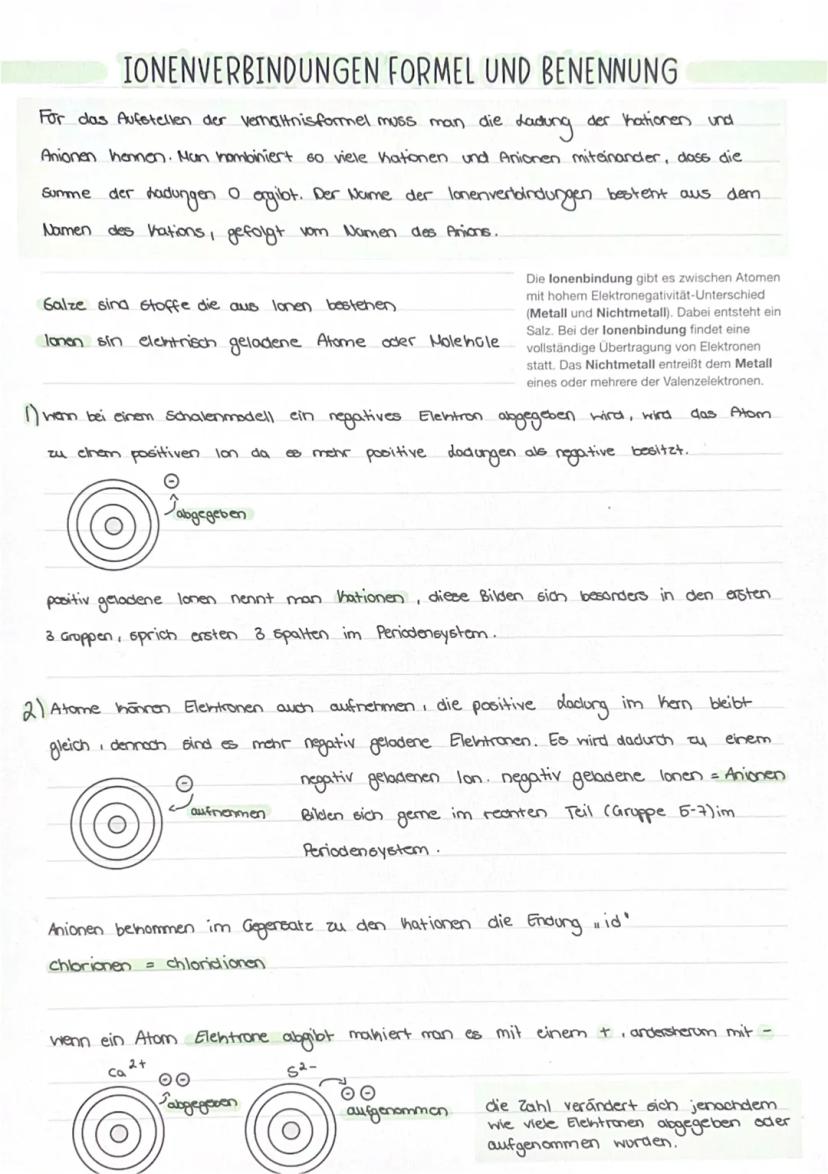 IONENVERBINDUNGEN FORMEL UND BENENNUNG
Für das Aufstellen der Verhältnisformel muss man die Ladung der Kationen und
Anionen kennen. Man kombiniert so viele Kationen und Anionen miteinander, dass die
Summe der Ladungen 0 ergibt. Der Name der Ionenverbindungen besteht aus dem
Namen des Kations, gefolgt vom Namen des Anions.
Salze sind Stoffe die aus Ionen bestehen
Ionen sin elektrisch geladene Atome oder Moleküle
Die Ionenbindung gibt es zwischen Atomen
mit hohem Elektronegativität-Unterschied
(Metall und Nichtmetall). Dabei entsteht ein
Salz. Bei der Ionenbindung findet eine
vollständige Übertragung von Elektronen
statt. Das Nichtmetall entreißt dem Metall
eines oder mehrere der Valenzelektronen.
1) wenn bei einem Schalenmodell ein negatives Elektron abgegeben wird, wird das Atom
zu einem positiven Ion da es mehr positive Ladungen als negative besitzt.
⊖
abgegeben
positiv geladene Ionen nennt man Kationen, diese Bilden sich besonders in den ersten
3 Gruppen, sprich ersten 3 Spalten im Periodensystem.
2) Atome können Elektronen auch aufnehmen, die positive Ladung im Kern bleibt
gleich, dennoch sind es mehr negativ geladene Elektronen. Es wird dadurch zu einem
negativ geladenen Ion. negativ geladene Ionen = Anionen
Bilden sich gerne im rechten Teil (Gruppe 5-7) im
Periodensystem.
⊖
aufnehmen
Anionen bekommen im Gegensatz zu den Kationen die Endung „id"
Chlorionen = Chloridionen
wenn ein Atom Elektrone abgibt makiert man es mit einem +, andersherum mit -
Ca2+
⊖⊖
abgegeben
S2-
⊖⊖
aufgenommen
die Zahl verändert sich jenachdem
wie viele Elektronen abgegeben oder
aufgenommen wurden.